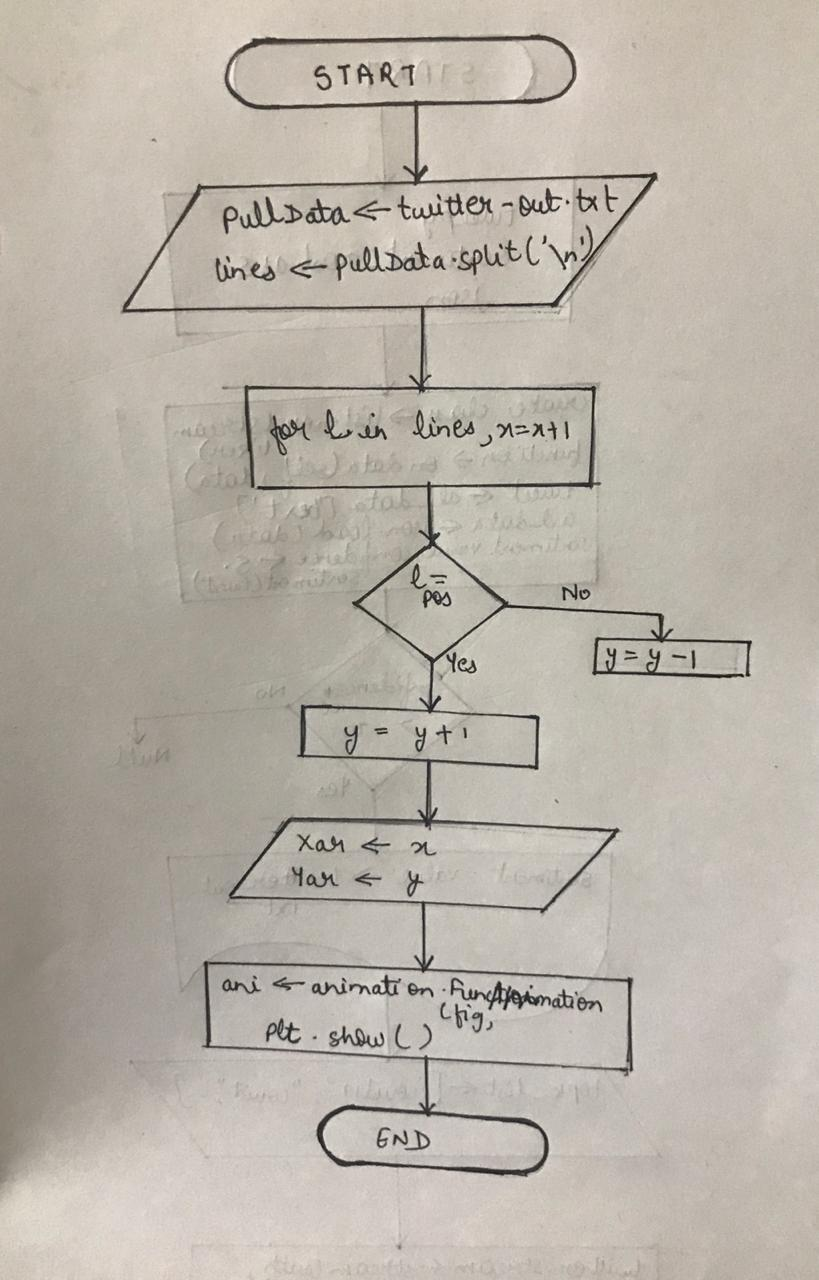 START
PullData ← twitter-out.txt
lines ← PullData.split('\n')
for l in lines, x=x+1
l=
pos
No
y = y -1
Yes
y = y+1
xar ← x
Yar ← y
ani ← animation.
(fig,
plt.show()
END